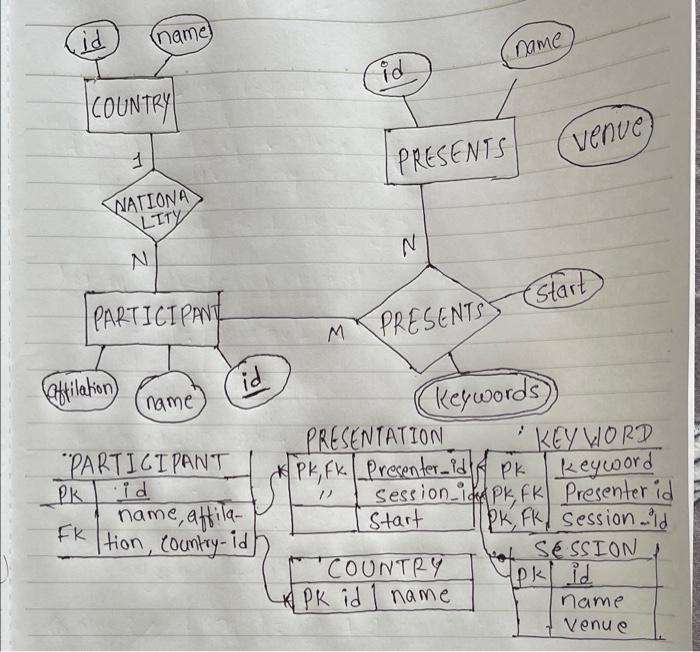 id
name
COUNTRY
1
NATIONA
LITY
N
PARTICIPANT
affilation
name
id
id
name
PRESENTS
venue
N
M
PRESENTS
Start
Keywords
PARTICIPANT
PK id
FK name, affila-
tion, country-id
PRESENTATION
PK, FK Presenter_id
" session_id
Start
COUNTRY
PK id name
KEYWORD
PK keyword
PK, FK Presenter id
PK, FK session_id
SESSION
PK id
name
venue